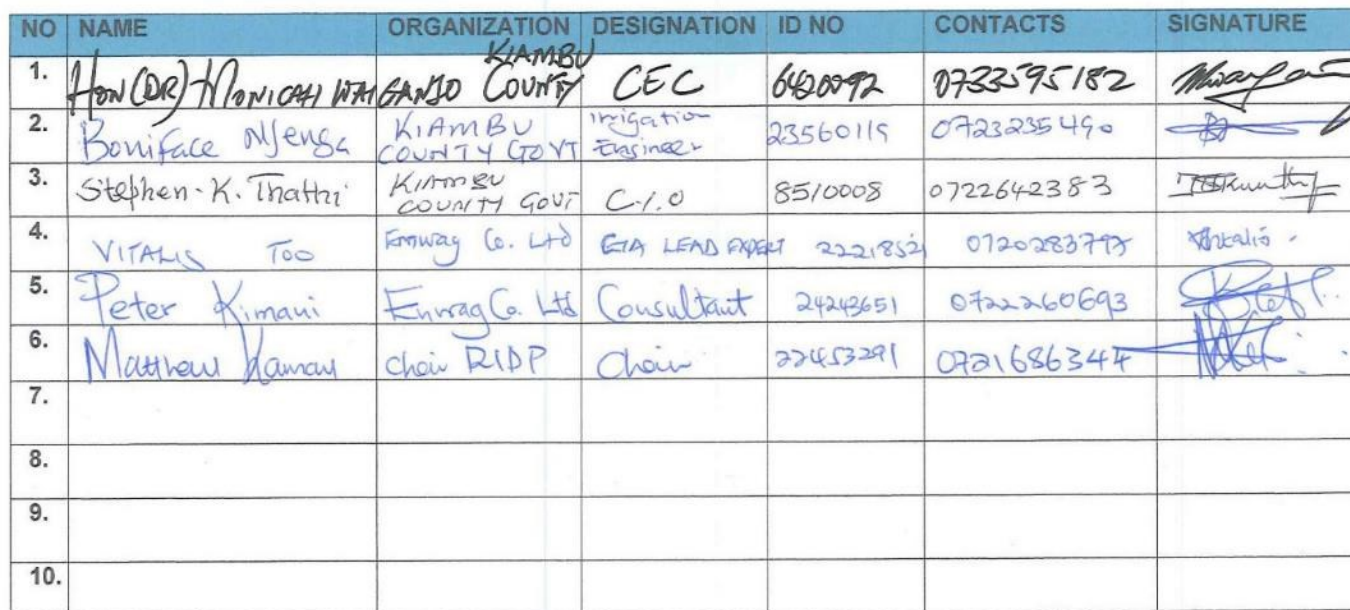 NO NAME ORGANIZATION DESIGNATION ID NO CONTACTS SIGNATURE
1. HON (DR) MONICAH WAIGANJO KIAMBU COUNTY CEC 6420092 0733595182
2. Boniface Njenga KIAMBU COUNTY GOVT irrigation Engineer 23560119 0723235490
3. Stephen. K. Thathi KIAMBU COUNTY GOVT C.I.O 8510008 0722642383
4. VITALIS TOO Emwag Co. Ltd EIA LEAD EXPERT 22218521 0720283797 Vitalis
5. Peter Kimani Enwag Co. Ltd Consultant 24243651 0722260693
6. Matthew Kamau Chair RIDP Chair 22453291 0721686344
7.
8.
9.
10.